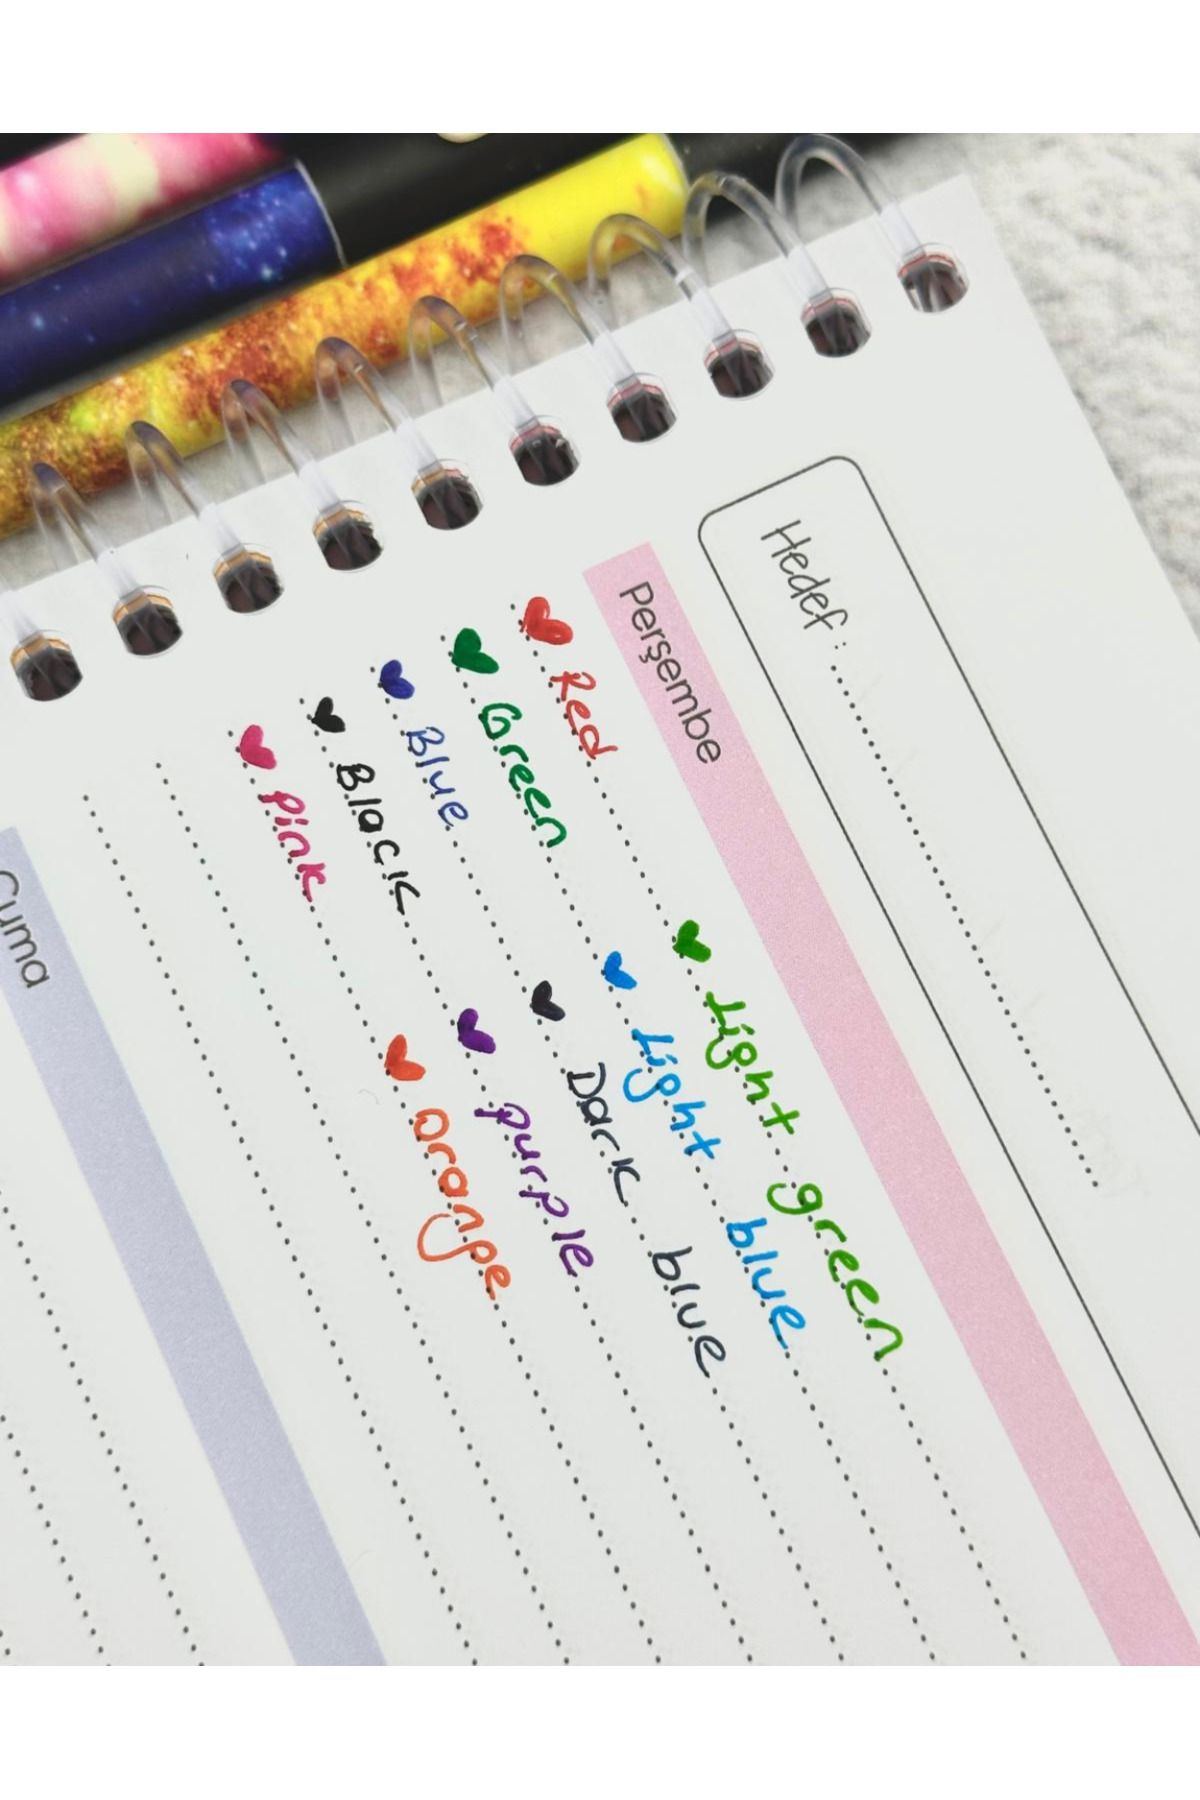 Hedef :
Perşembe
Red Light green
Green Light blue
Blue Dark blue
Black purple
pink orange
Cuma